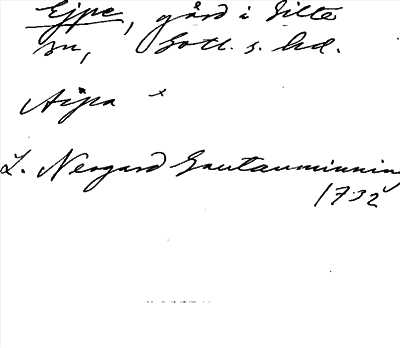 Ejpe, gård i Silte
sn, Gotl. s. hd.
Aipa x
L. Neogard Gautauminning
1732